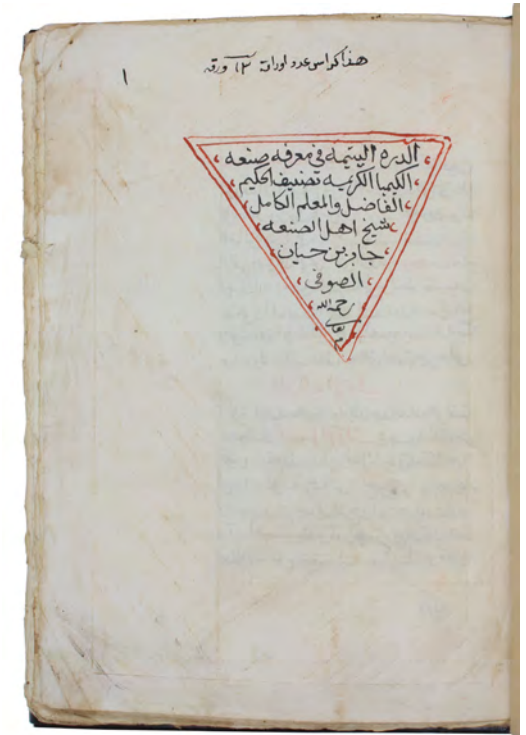 هذا كراس عدد اوراقه ١٢ ورقه
١
الدره اليتيمه في معرفه صنعه
الكيميا الكريمه تصنيف الحكيم
الفاضل والمعلم الكامل
شيخ اهل الصنعه
جابر بن حيان
الصوفي
رحمه الله
تعالى